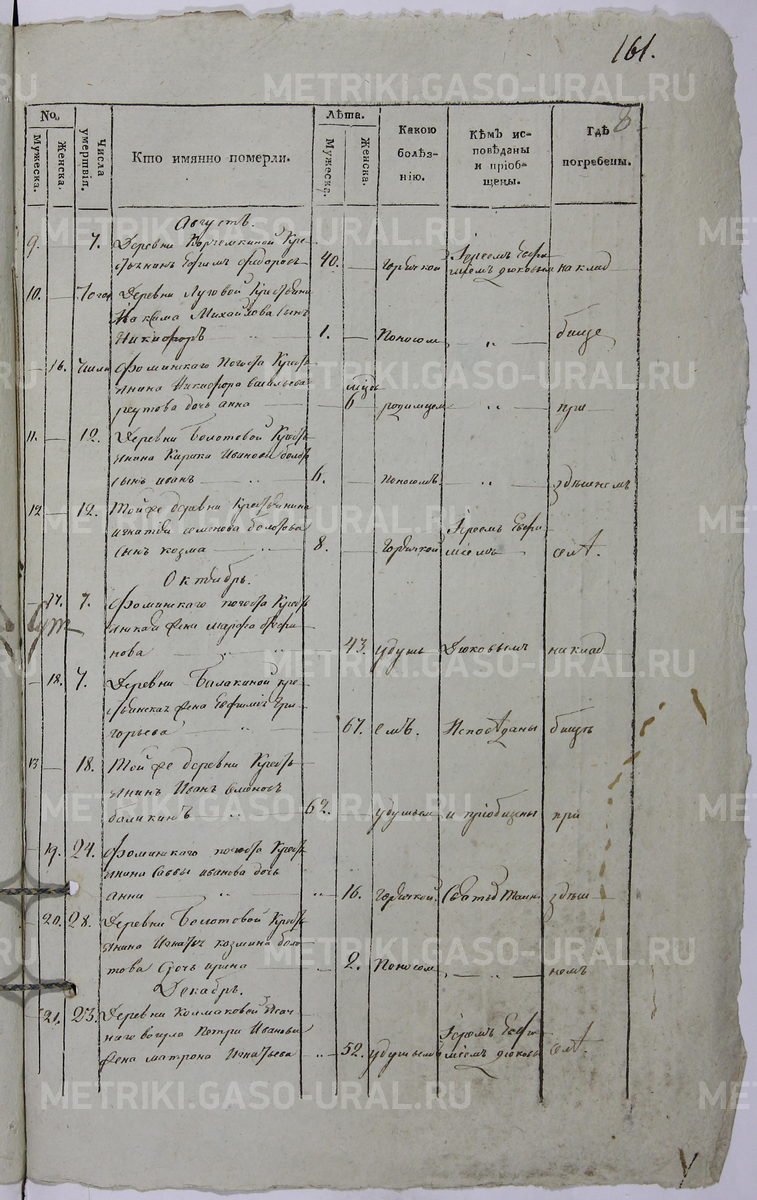 161.
8
No.
Мужеска.
Женска.
Числа умертвія.
Кто имянно померли.
Лѣта.
Мужеска.
Женска.
Какою болѣзнію.
Кѣмъ исповѣданы и пріобщены.
Гдѣ погребены.
Августъ.
9. 7. Деревни Кре-
стьянинъ Ефимъ Федоровъ 40. горячкой Іереемъ Евфиміемъ Дюковымъ на клад
10. Деревни Луговой Крестьянина
Максима Михайлова сынъ
Никифоръ 1. поносом „ бище
16. числа Фоминскаго Погоста Кресть
янина Никифора Васильева мцы
Реутова дочь Анна 6 родимцем „ при
11. 12. Деревни Болотовой Кресть
янина Кирика Иванова
сынъ Иванъ 6. поносомъ „ здѣшнемъ
12 12. Той же деревни Крестьянина
Игнатія Семенова Болотова Іереем Евфи
сынъ Козма 8. горячкой міемъ селѣ.
Октябрь.
17. 7. Фоминскаго погоста Кресть
янская жена Марфа
нова 43. удушь Дюковымъ на клад
18. 7. Деревни Балакиной кре-
стьянская жена Евфимія Гри
горьева 67. емъ. Исповѣданы бищѣ
13 18. Той же деревни Кресть
янинъ Иванъ Семеновъ
Балакинъ 62. удушьем и пріобщены при
19. 24. Фоминскаго погоста Кресть
янина Саввы Иванова дочь
Анна 16. горячкой. Святыхъ Таинъ здѣш
20. 28. Деревни Болотовой Кресть
янина Игнатія Козмина Боло
това дочь Ирина 2. поносом „ немъ
Декабрь.
21. 23. Деревни Колмаковой Ясач
наго Петра Иванова Іереем Евфи
жена Матрона Игнатьева 52. удушьемъ міемъ Дюковым селѣ.
METRIKI.GASO-URAL.RU